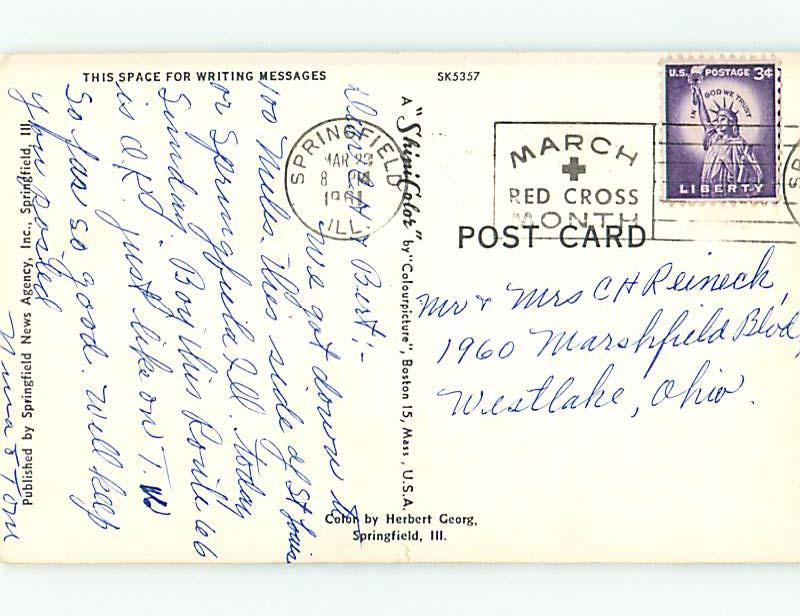 THIS SPACE FOR WRITING MESSAGES
SK5357
U.S. POSTAGE 3¢
IN GOD WE TRUST
LIBERTY
SPRINGFIELD
MAR
8 PM
ILL.
MARCH
RED CROSS
MONTH
POST CARD
Mr & Mrs C H Reineck
1960 Marshfield Blvd,
Westlake, Ohio.
& Bert:-
We got down to
100 miles this side of St Louis
or Springfield Ill. today
Sunday. Boy this Route 66
is O.K. just like on T.V.
So far so good. Will keep
you posted
& Tom
A "ShiniColor" by "Colourpicture", Boston 15, Mass., U.S.A.
Published by Springfield News Agency, Inc., Springfield, Ill.
Color by Herbert Georg,
Springfield, Ill.